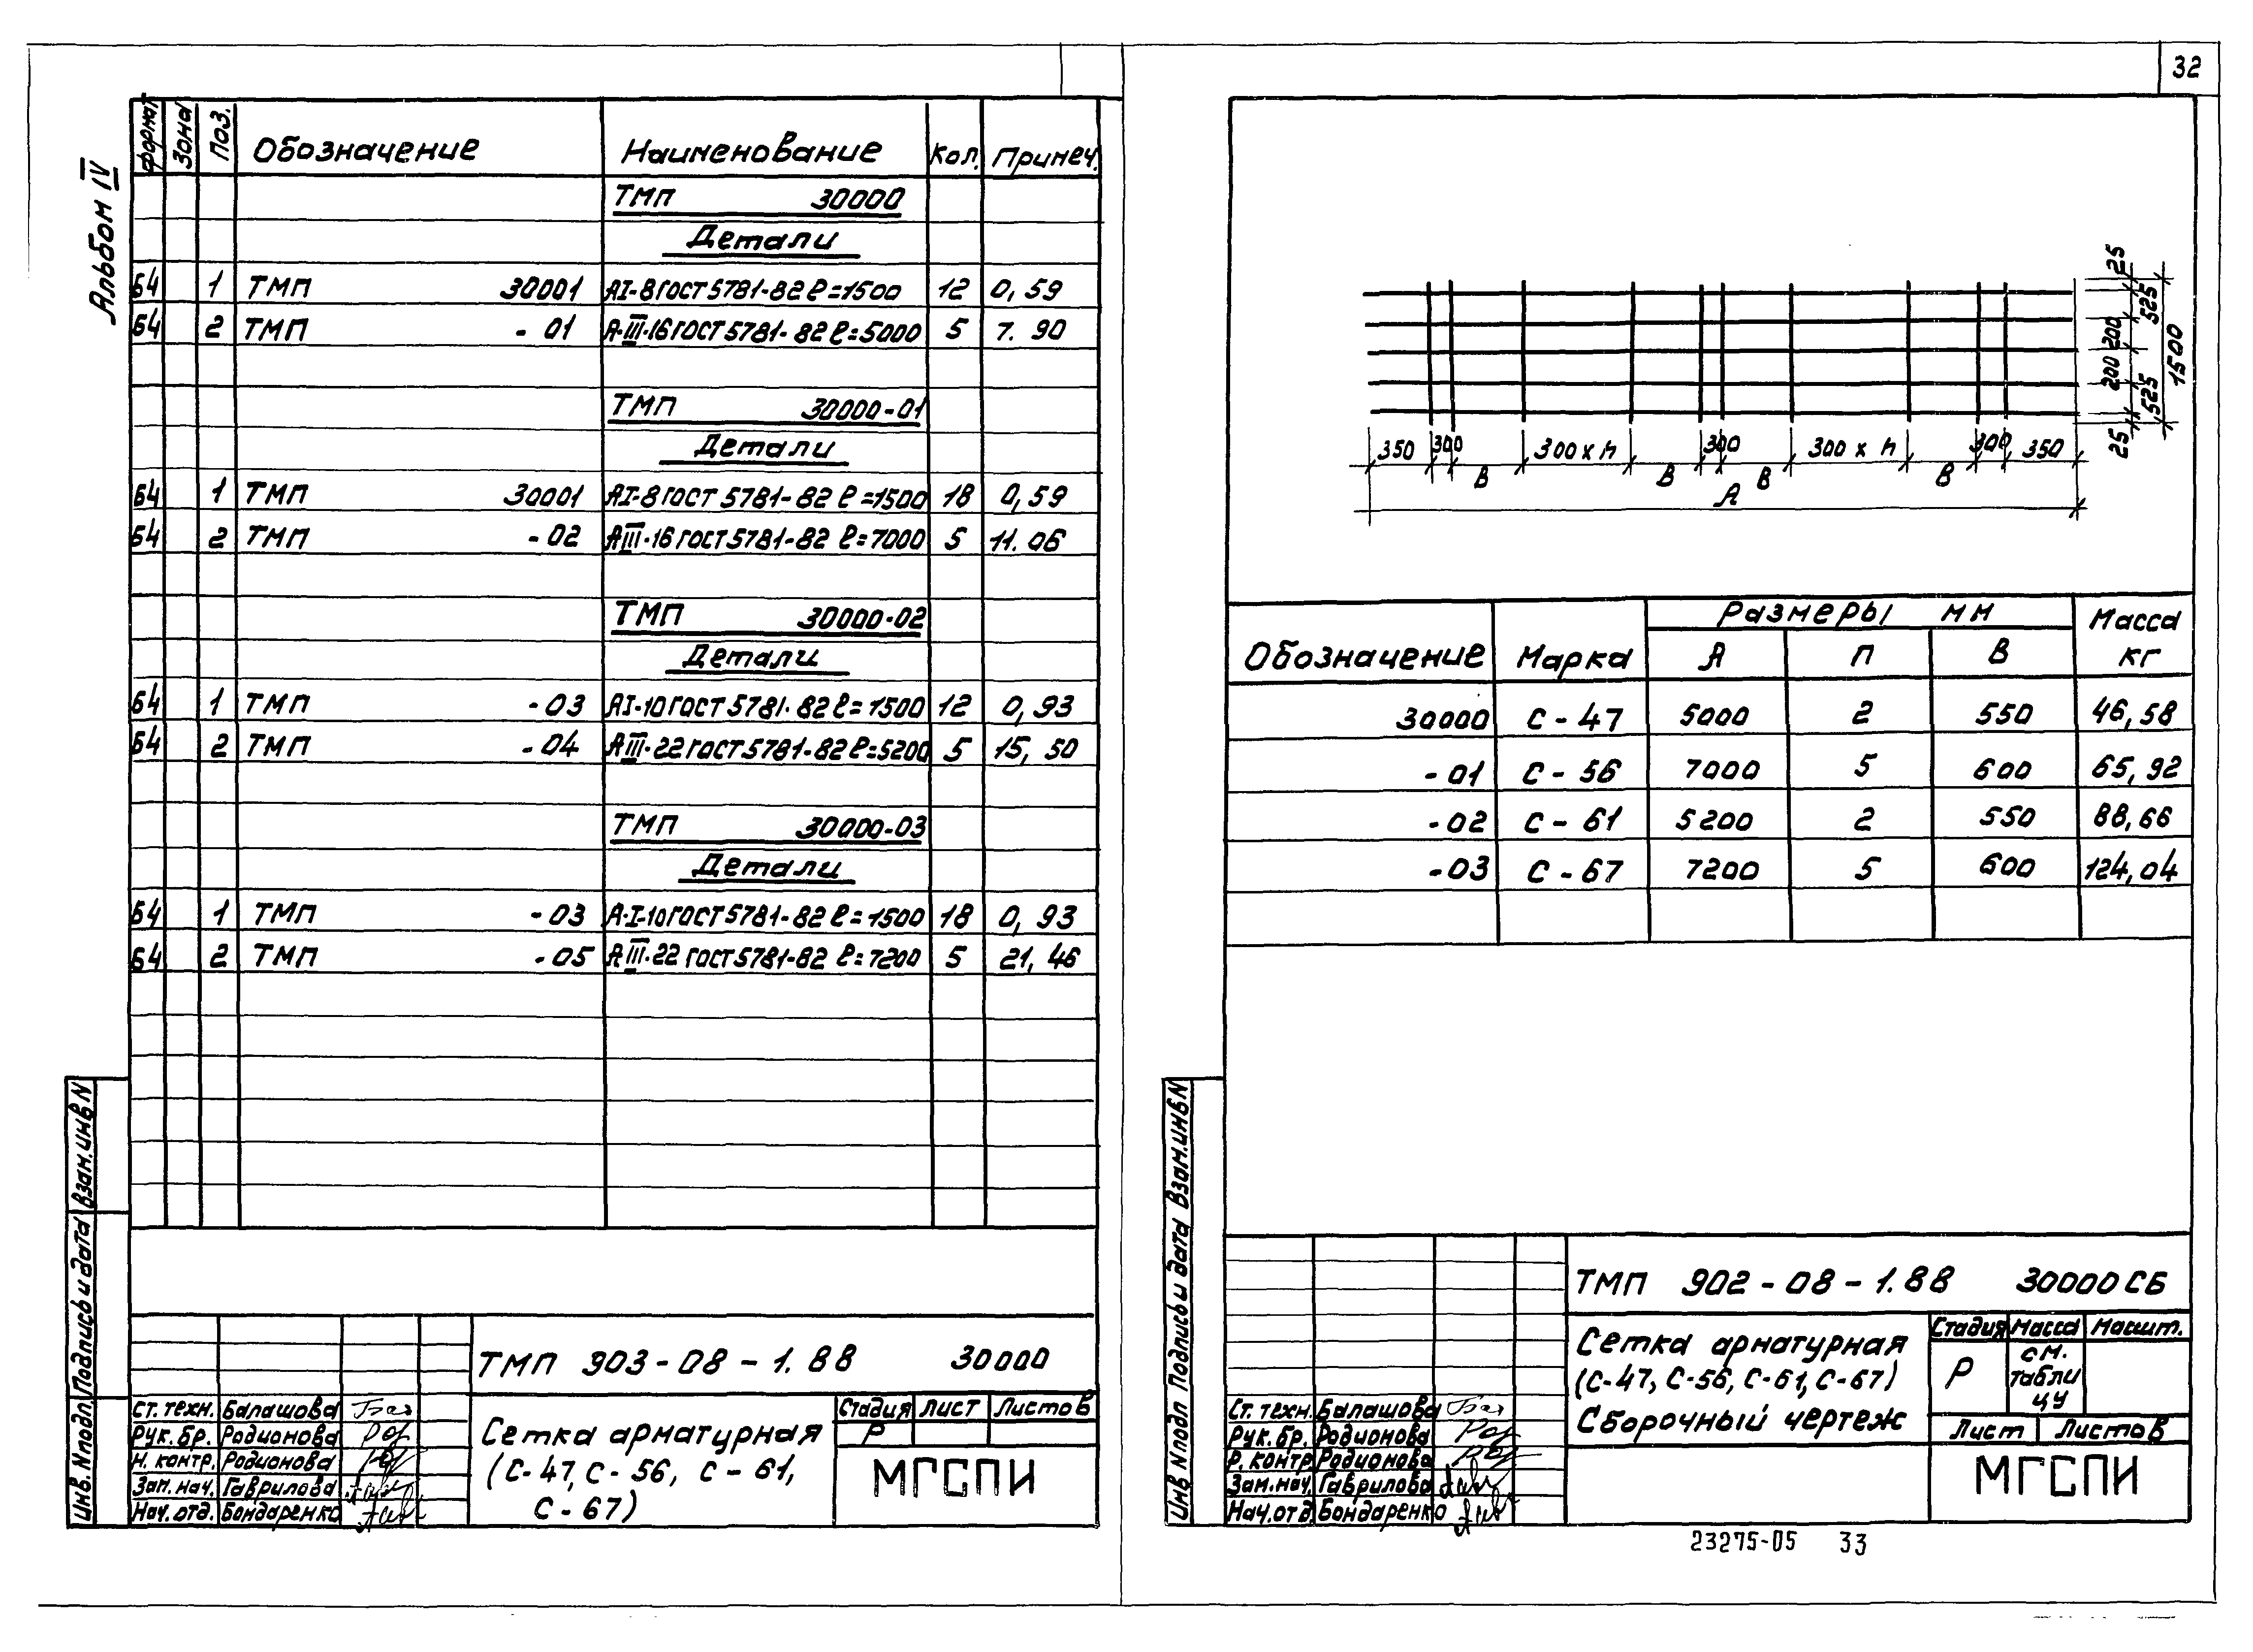 32
Альбом IV
Формат Зона Поз. Обозначение Наименование Кол. Примеч.
ТМП 30000
Детали
Б4 1 ТМП 30001 АI-8 ГОСТ 5781-82 ℓ=1500 12 0,59
Б4 2 ТМП -01 А-III-16 ГОСТ 5781-82 ℓ=5000 5 7.90
ТМП 30000-01
Детали
Б4 1 ТМП 30001 АI-8 ГОСТ 5781-82 ℓ=1500 18 0,59
Б4 2 ТМП -02 АIII-16 ГОСТ 5781-82 ℓ=7000 5 11.06
ТМП 30000-02
Детали
Б4 1 ТМП -03 АI-10 ГОСТ 5781-82 ℓ=1500 12 0,93
Б4 2 ТМП -04 АIII-22 ГОСТ 5781-82 ℓ=5200 5 15,50
ТМП 30000-03
Детали
Б4 1 ТМП -03 А-I-10 ГОСТ 5781-82 ℓ=1500 18 0,93
Б4 2 ТМП -05 АIII-22 ГОСТ 5781-82 ℓ=7200 5 21,46
Инв. N подл. Подпись и дата Взам.инв N
ТМП 903-08-1.88 30000
Ст. техн. Балашова
Рук. бр. Родионова
Н. контр. Родионова
Зам. нач. Гаврилова
Нач. отд. Бондаренко
Сетка арматурная
(С-47, С-56, С-61,
С-67)
Стадия Лист Листов
Р
МГСПИ
25 525 200 200 525 25 1500
350 300 В 300 х п В 300 В 300 х п В 300 350
А
Обозначение Марка Размеры мм Масса кг
А п В
30000 С-47 5000 2 550 46,58
-01 С-56 7000 5 600 65,92
-02 С-61 5200 2 550 88,66
-03 С-67 7200 5 600 124,04
Инв N подл Подпись и дата Взам.инв.N
ТМП 902-08-1.88 30000 СБ
Ст. техн. Балашова
Рук. бр. Родионова
Р. контр Родионова
Зам. нач. Гаврилова
Нач. отд. Бондаренко
Сетка арматурная
(С-47, С-56, С-61, С-67)
Сборочный чертеж
Стадия Масса Масшт.
Р см. таблицу
Лист Листов
МГСПИ
23275-05 33